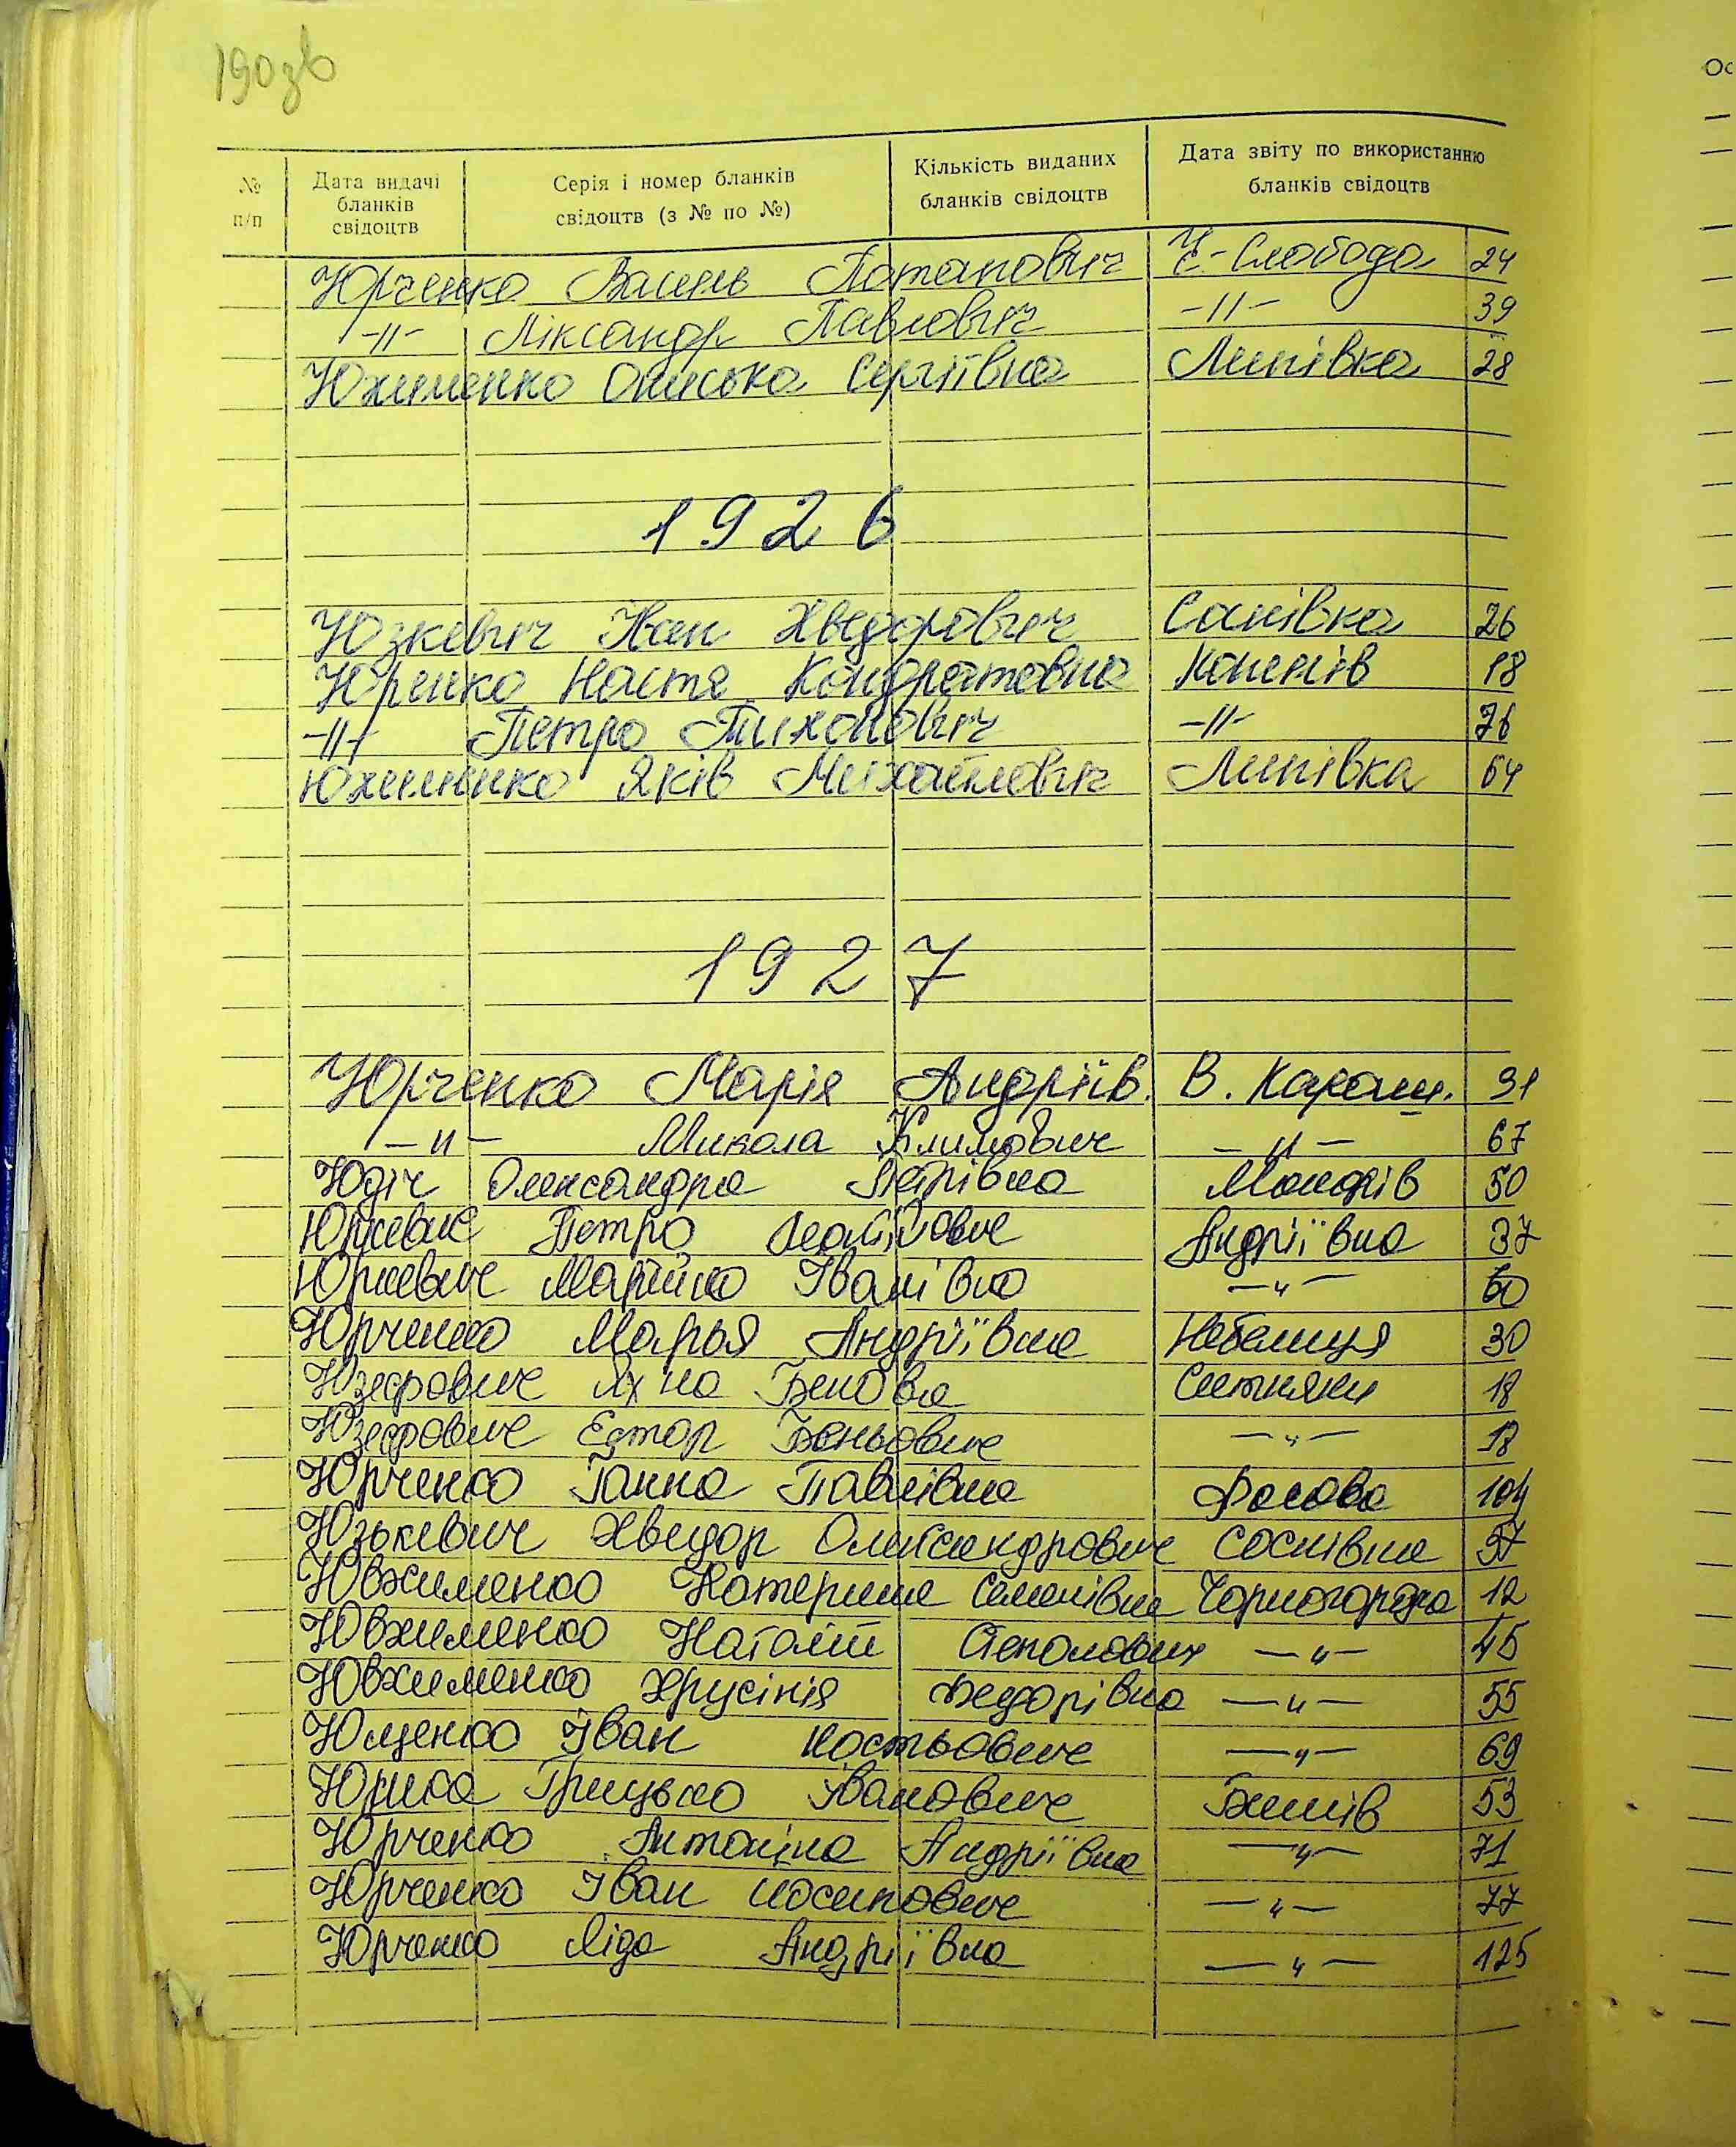 190зв
№ п/п
Дата видачі бланків свідоцтв
Серія і номер бланків свідоцтв (з № по №)
Кількість виданих бланків свідоцтв
Дата звіту по використанню бланків свідоцтв
Юрченко Василь Потапович Ч-Слобода 24
-//- Ліксандр Павлович -//- 39
Юхименко Олиська Сергіївна Липівка 28
1926
Юзкевич Іван Хведорович Соснівка 26
Юренко Настя Кондратовна Копилів 18
-//- Петро Тихонович -//- 76
Юхименко Яків Михайлович Липівка 64
1927
Юрченко Марія Андріїв. В. Караш. 31
-//- Микола Климович -//- 67
Юдіч Олександра Петрівна Макарів 50
Юркевич Петро Андріївка 37
Юркевич Марійка Іванівна -//- 60
Юрченко Марья Андріївна Небелиця 30
Юзефович Яхна Беновна Ситняки 18
Юзефович Естор Беньович -//- 18
Юрченко Ганна Павлівна Фасова 104
Юзькевич Хведор Олександрович Соснівка 37
Ювхименко Катерина Семенівна Чорногородка 12
Ювхименко Наталія Степанович -//- 45
Ювхименко Хрусінія Федорівна -//- 55
Ющенко Іван Костьович -//- 69
Юрша Грицько Іванович Бишів 53
Юрченко Антоніна Андріївна -//- 71
Юрченко Іван Йосипович -//- 77
Юрченко Ліда Андріївна -//- 125
Ос